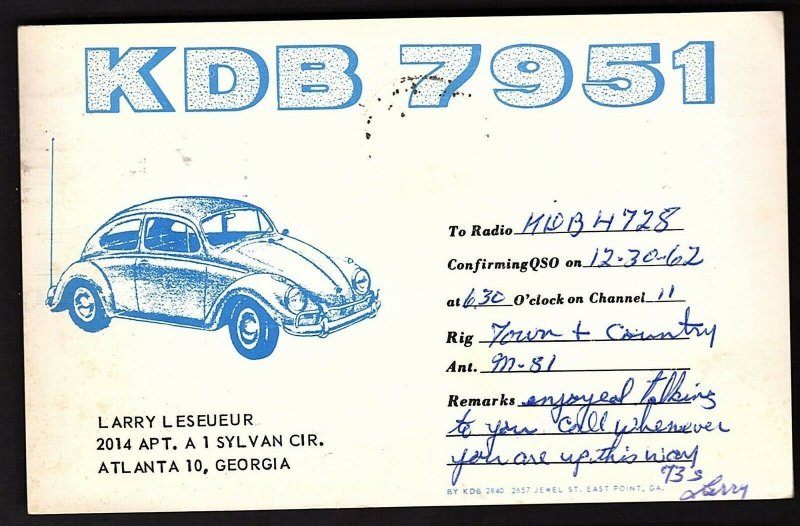 KDB 7951
To Radio KDB 4728
Confirming QSO on 12-30-62
at 630 O'clock on Channel 11
Rig Town + Country
Ant. M-81
Remarks enjoyed talking
to you. Call whenever
you are up this way
73s
Larry
LARRY LESEUEUR
2014 APT. A 1 SYLVAN CIR.
ATLANTA 10, GEORGIA
BY KDB 2840 2657 JEWEL ST. EAST POINT, GA.